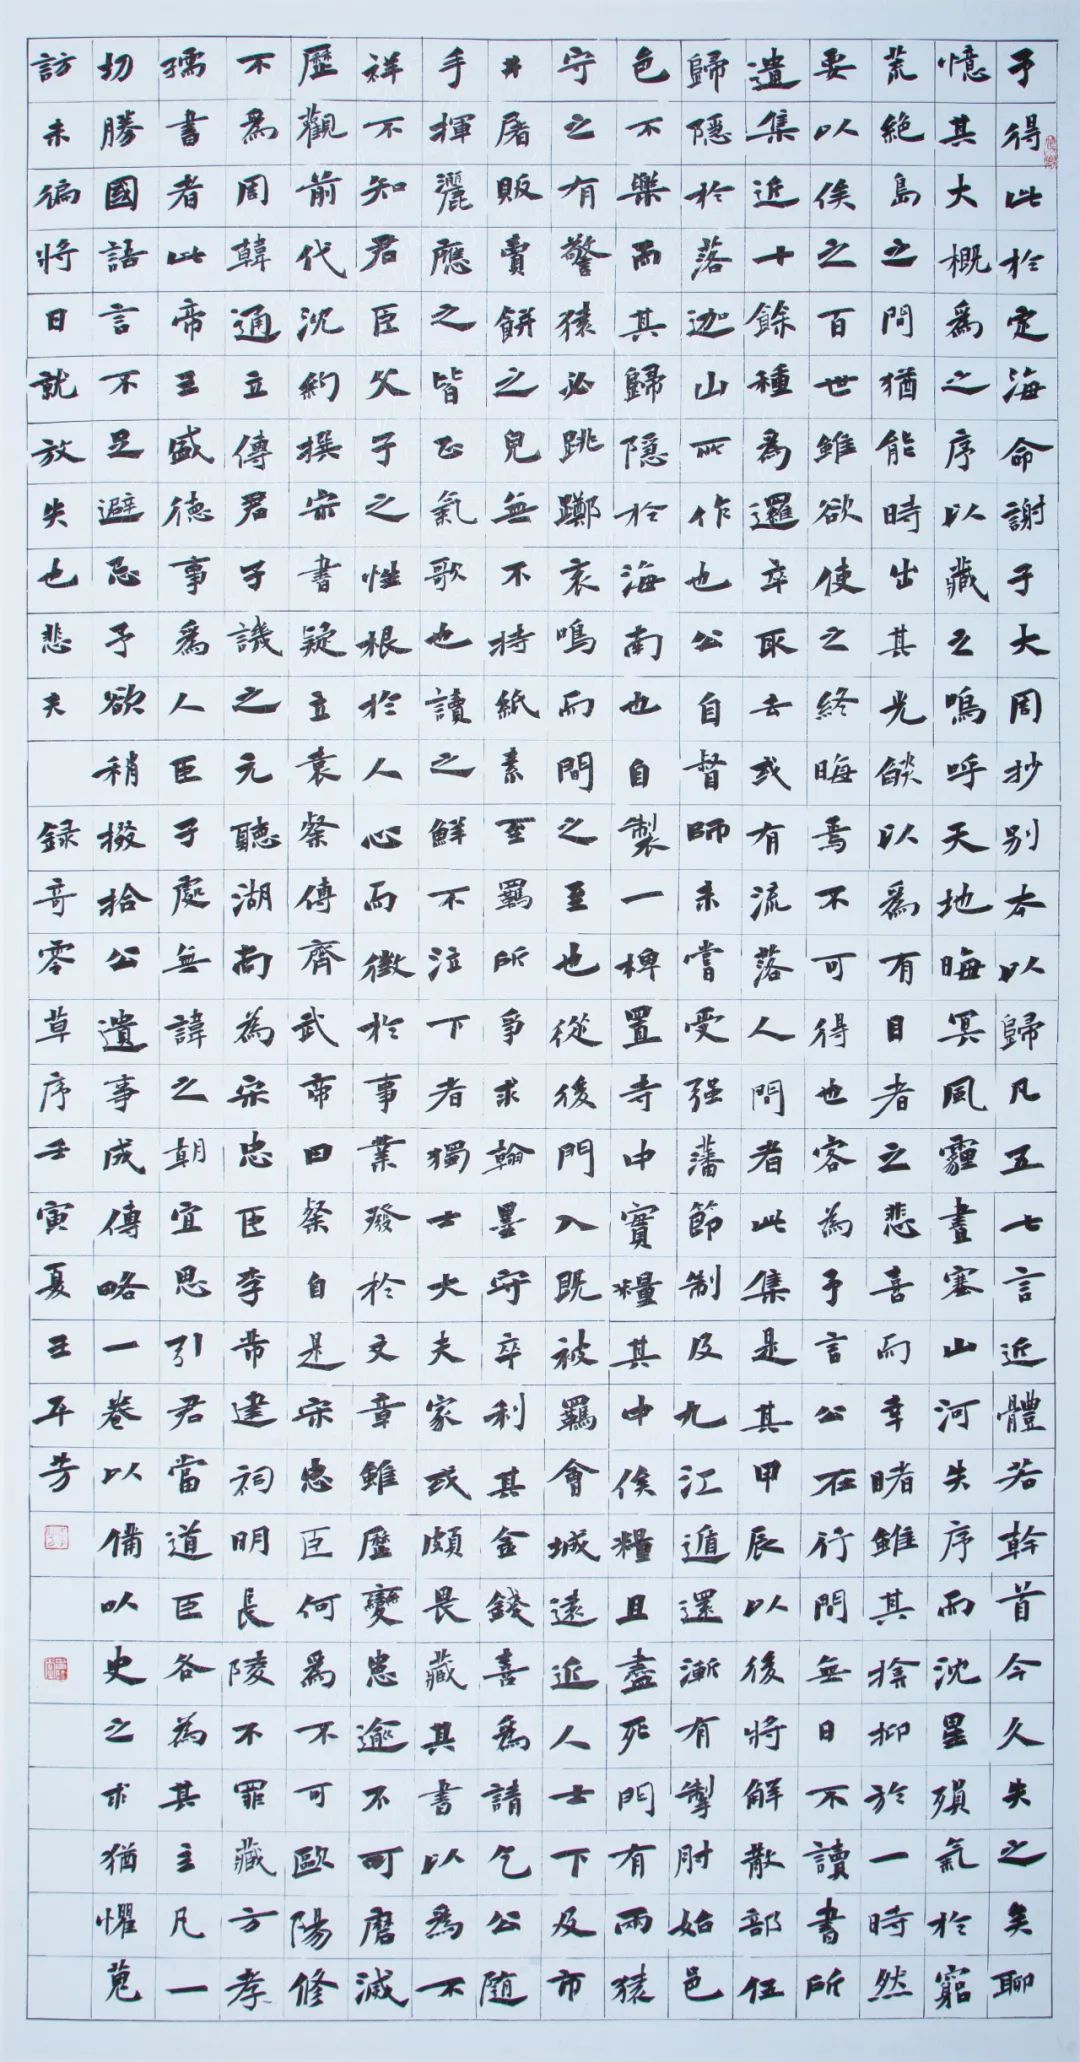 予得此於定海命謝子大周抄別本以歸凡五七言近體若幹首今久失之矣聊
憶其大概爲之序以藏之嗚呼天地晦冥風霾晝塞山河失序而沈星殞氣於窮
荒絕島之間猶能時出其光燄以爲有目者之悲喜而幸睹雖其揜抑於一時然
要以俟之百世雖欲使之終晦焉不可得也客為予言公在行間無日不讀書所
遺集近十餘種爲邏卒取去或有流落人間者此集是其甲辰以後將解散部伍
歸隱於落迦山所作也公自督師未嘗受强藩節制及九江遁還漸有掣肘始邑
色不樂而其歸隱於海南也自製一椑置寺中實糧其中俟糧且盡死門有兩猿
守之有警猿必跳躑哀鳴而間之至也從後門入既被羈會城遠近人士下及市
井屠販賣餅之兒無不持紙素至羈所爭求翰墨守卒利其金錢喜爲請乞公隨
手揮灑應之皆正氣歌也讀之鮮不泣下者獨士大夫家或頗畏藏其書以爲不
祥不知君臣父子之性根於人心而徵於事業發於文章雖歷變患逾不可磨滅
歷觀前代沈約撰宋書疑立袁粲傳齊武帝曰粲自是宋忠臣何爲不可歐陽修
不爲周韓通立傳君子譏之元聽湖南為宋忠臣李芾建祠明長陵不罪藏方孝
孺書者此帝王盛德事爲人臣子處無諱之朝宜思引君當道臣各為其主凡一
切勝國語言不足避忌予欲稍掇拾公遺事成傳略一卷以備以史之求猶懼蒐
訪未徧將日就放失也悲夫 錄奇零草序壬寅夏王平芳